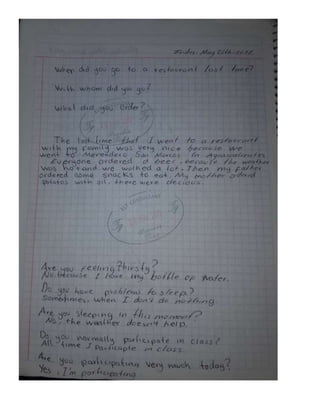 Friday, May 25th-2022
When did you go to a restaurant last time?
With whom did you go?
What did you order?
The last time that I went to a restaurant
with my family was very nice because we
went to Merendero San Marcos in Aguascalientes
Everyone ordered a beer, because the weather
was hot and we walked a lot. Then my father
ordered some snacks to eat. My mother
potatos with oil, there were decious.
Are you feeling thirsty?
No, because I have my bottle of water.
Do you have problems to sleep?
Sometimes, when I don't do nothing
Are you sleeping in this moment?
No, the weather doesn't help.
Do you normally participate in class?
All time I participate in class.
Are you participating very much today?
Yes, I'm participating